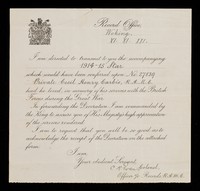 Record Office,
Woking.
I am directed to transmit to you the accompanying
1914-15 Star
which would have been conferred upon No. 27539
Private Cecil Henry Carter, R.A.M.C.
had he lived, in memory of his services with the British
Forces during the Great War.
In forwarding the Decoration I am commanded by
the King to assure you of His Majesty's high appreciation
of the services rendered.
I am to request that you will be so good as to
acknowledge the receipt of the Decoration on the attached
form.
I am,
Your obedient Servant,
Officer i/c Records R.A.M.C.